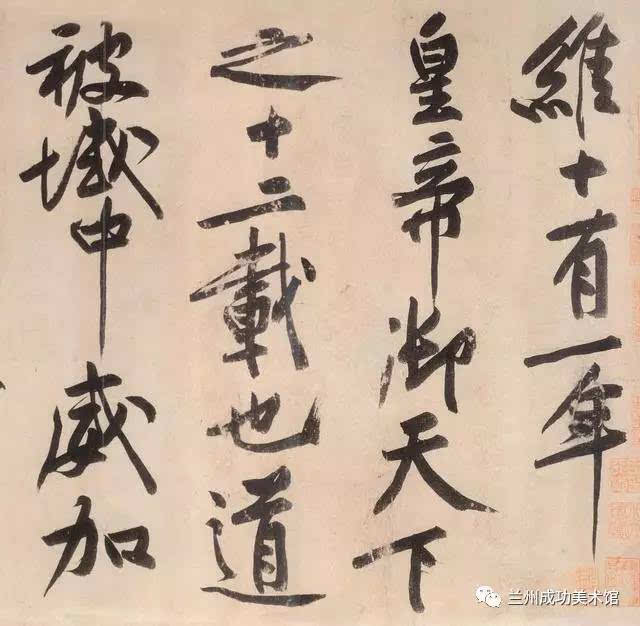 維十有一年
皇帝御天下
之十二載也道
被域中威加
兰州成功美术馆